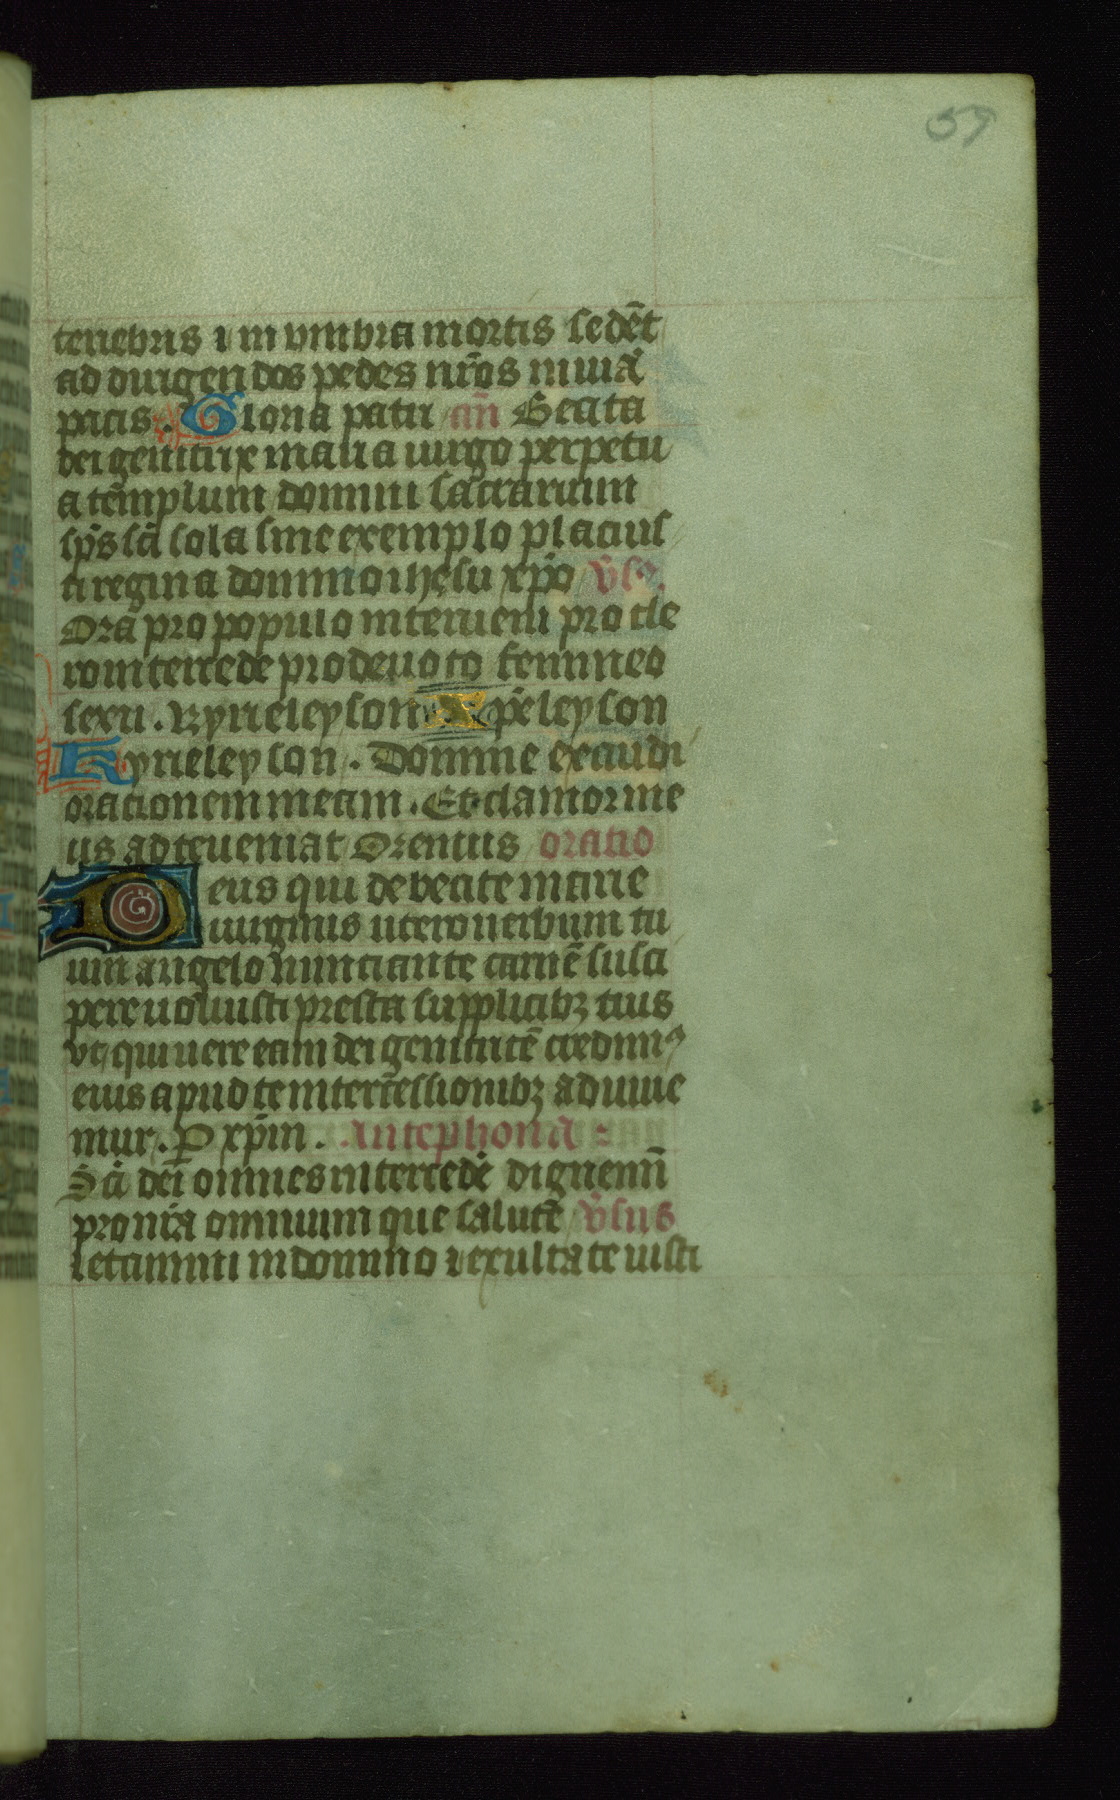 59
tenebris ⁊ in vmbra mortis sedēt
ad dirigendos pedes nr̄os in uiā
pacis. Gloria patri an̄ Beata
dei genitrix maria uirgo perpetu
a templum domini sacrarium
sp̄s sc̄i sola sine exemplo placuis
ti regina domino ihesu xp̄o v̄s
Ora pro populo interueni pro cle
ro intercede pro deuoto femineo
sexu. Kyrieleyson xp̄eleyson
Kyrieleyson. Domine exaudi
orationem meam. Et clamor me
us ad te ueniat Oremus oratio
Deus qui de beate marie
uirginis utero uerbum tu
um angelo nunciante carnē susci
pere uoluisti presta supplicibꝫ tuis
vt qui uere eam dei genitricē credimꝰ
eius apud te intercessionibꝫ adiuue
mur. P xp̄m. Antephona
Sc̄i dei omnes intercedē dignemī
pro nr̄a omnium que salutē v̄sus
letamini in domino ⁊ exultate iusti